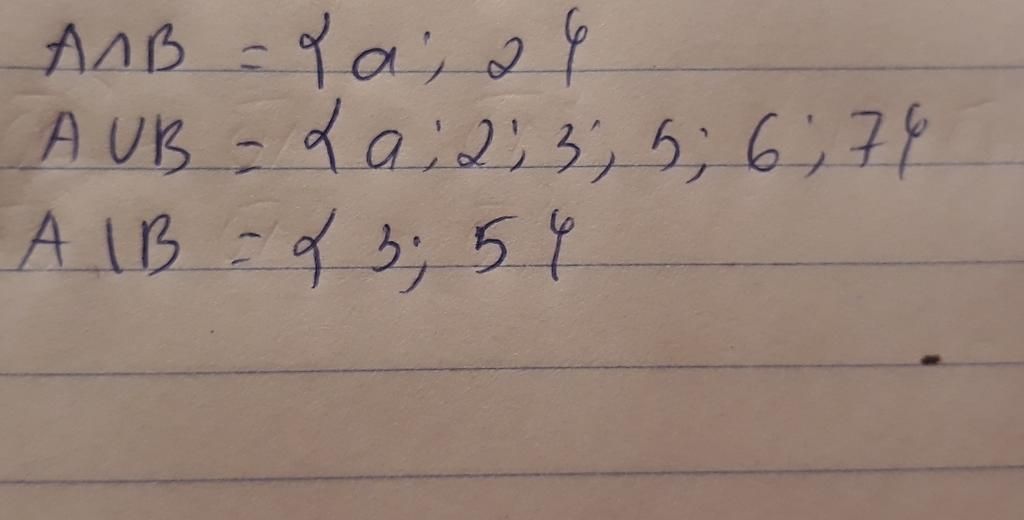 A∩B = {a; 2}
A∪B = {a; 2; 3; 5; 6; 7}
A\B = {3; 5}